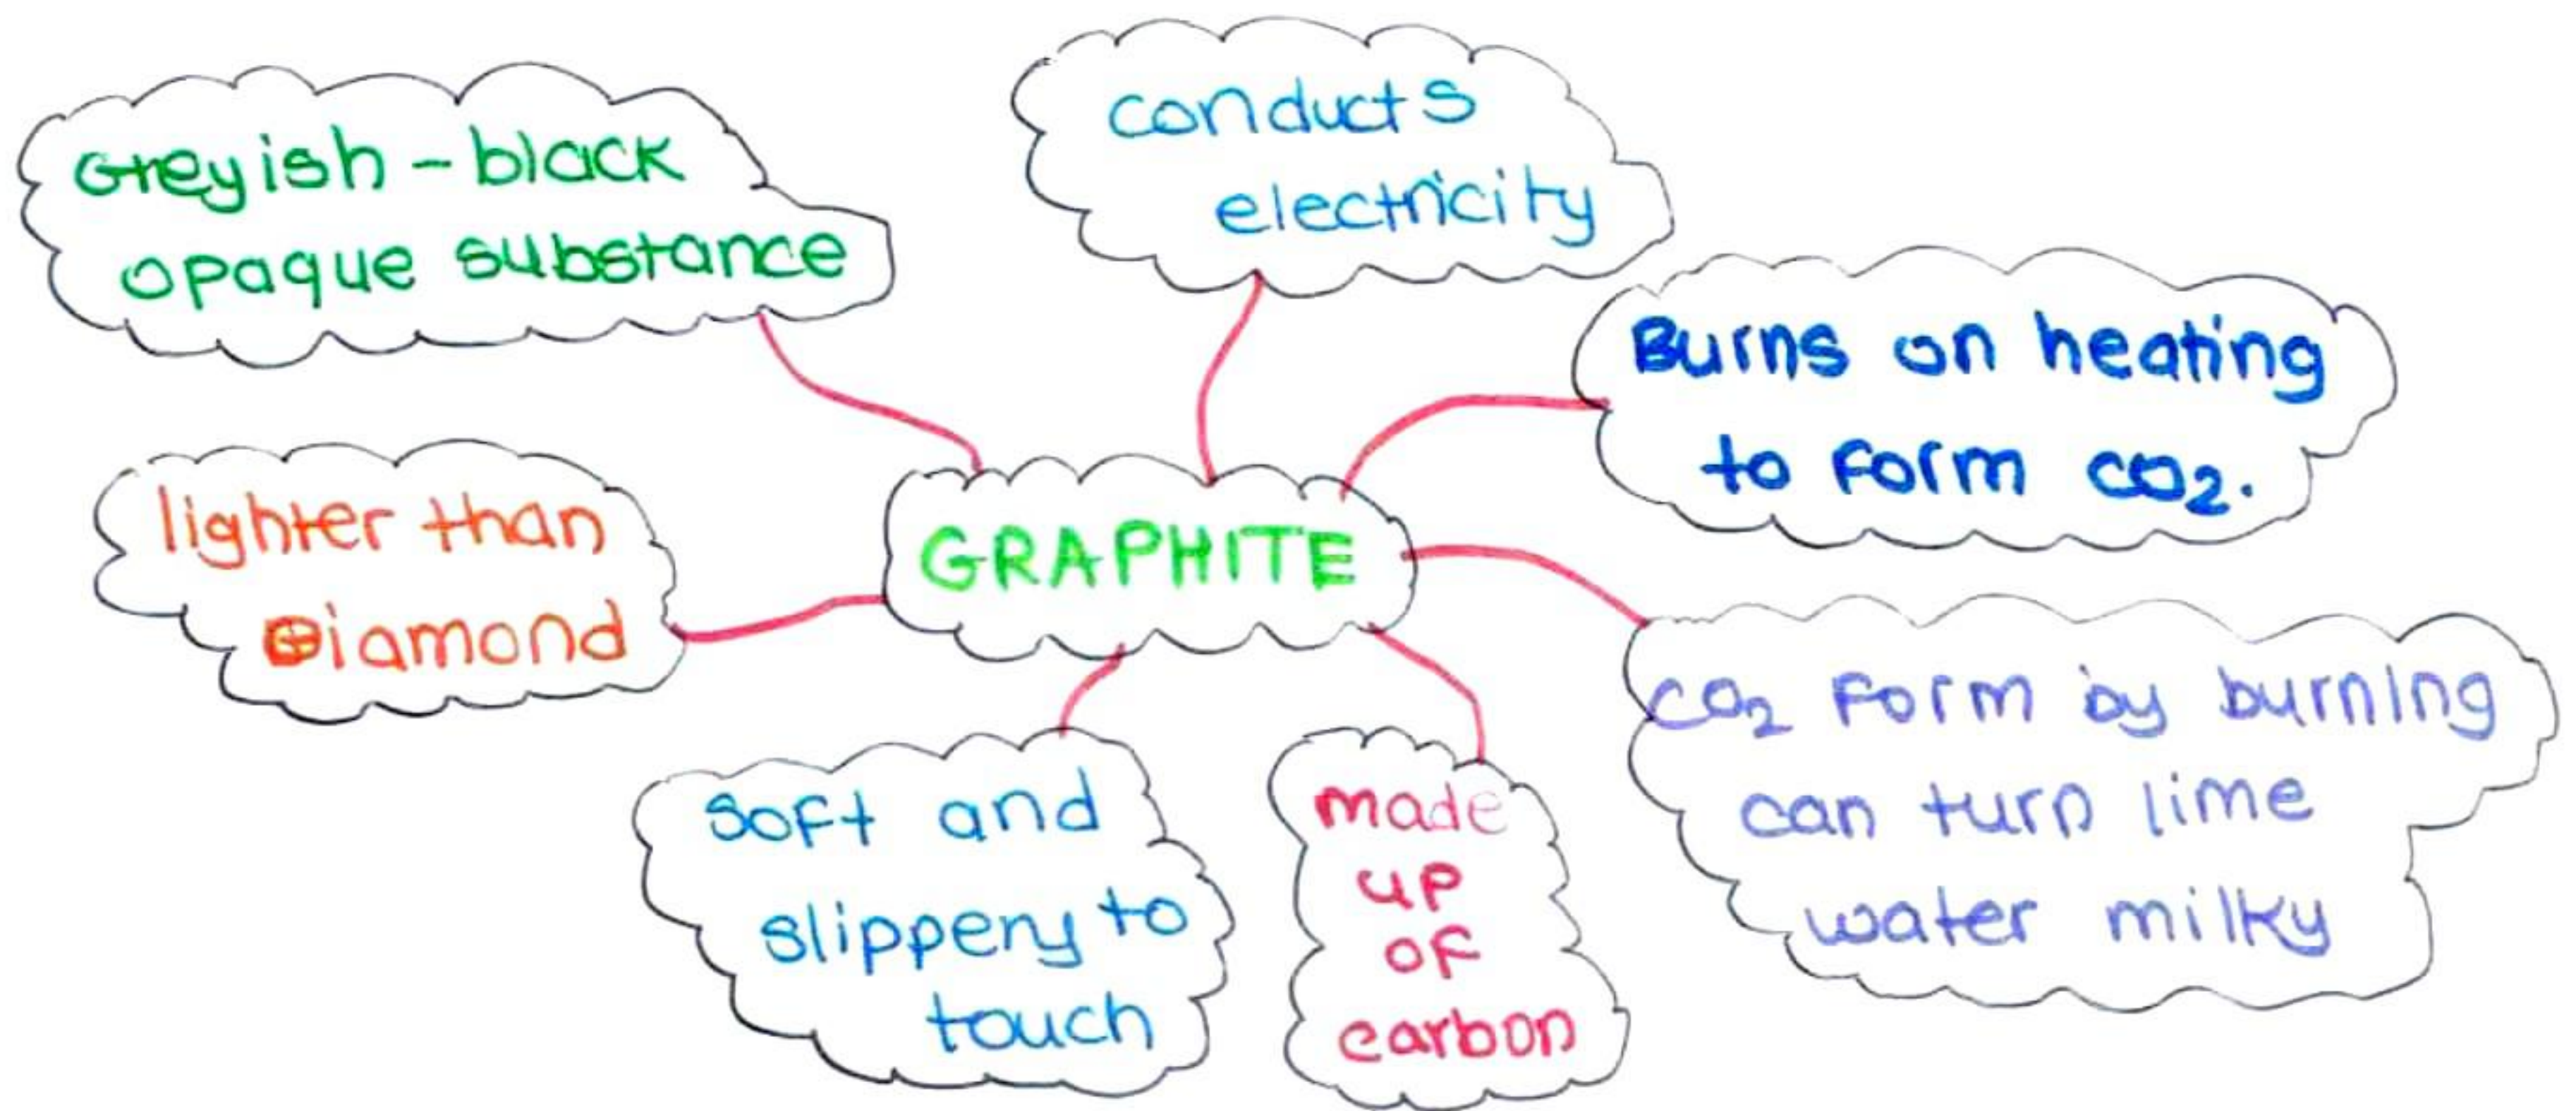 Greyish - black
opaque substance
conducts
electricity
Burns on heating
to form CO2.
lighter than
Diamond
GRAPHITE
CO2 form by burning
can turn lime
water milky
soft and
slippery to
touch
made
up
of
carbon